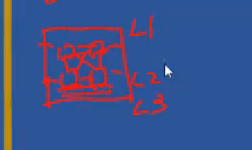 L1
L2
L3